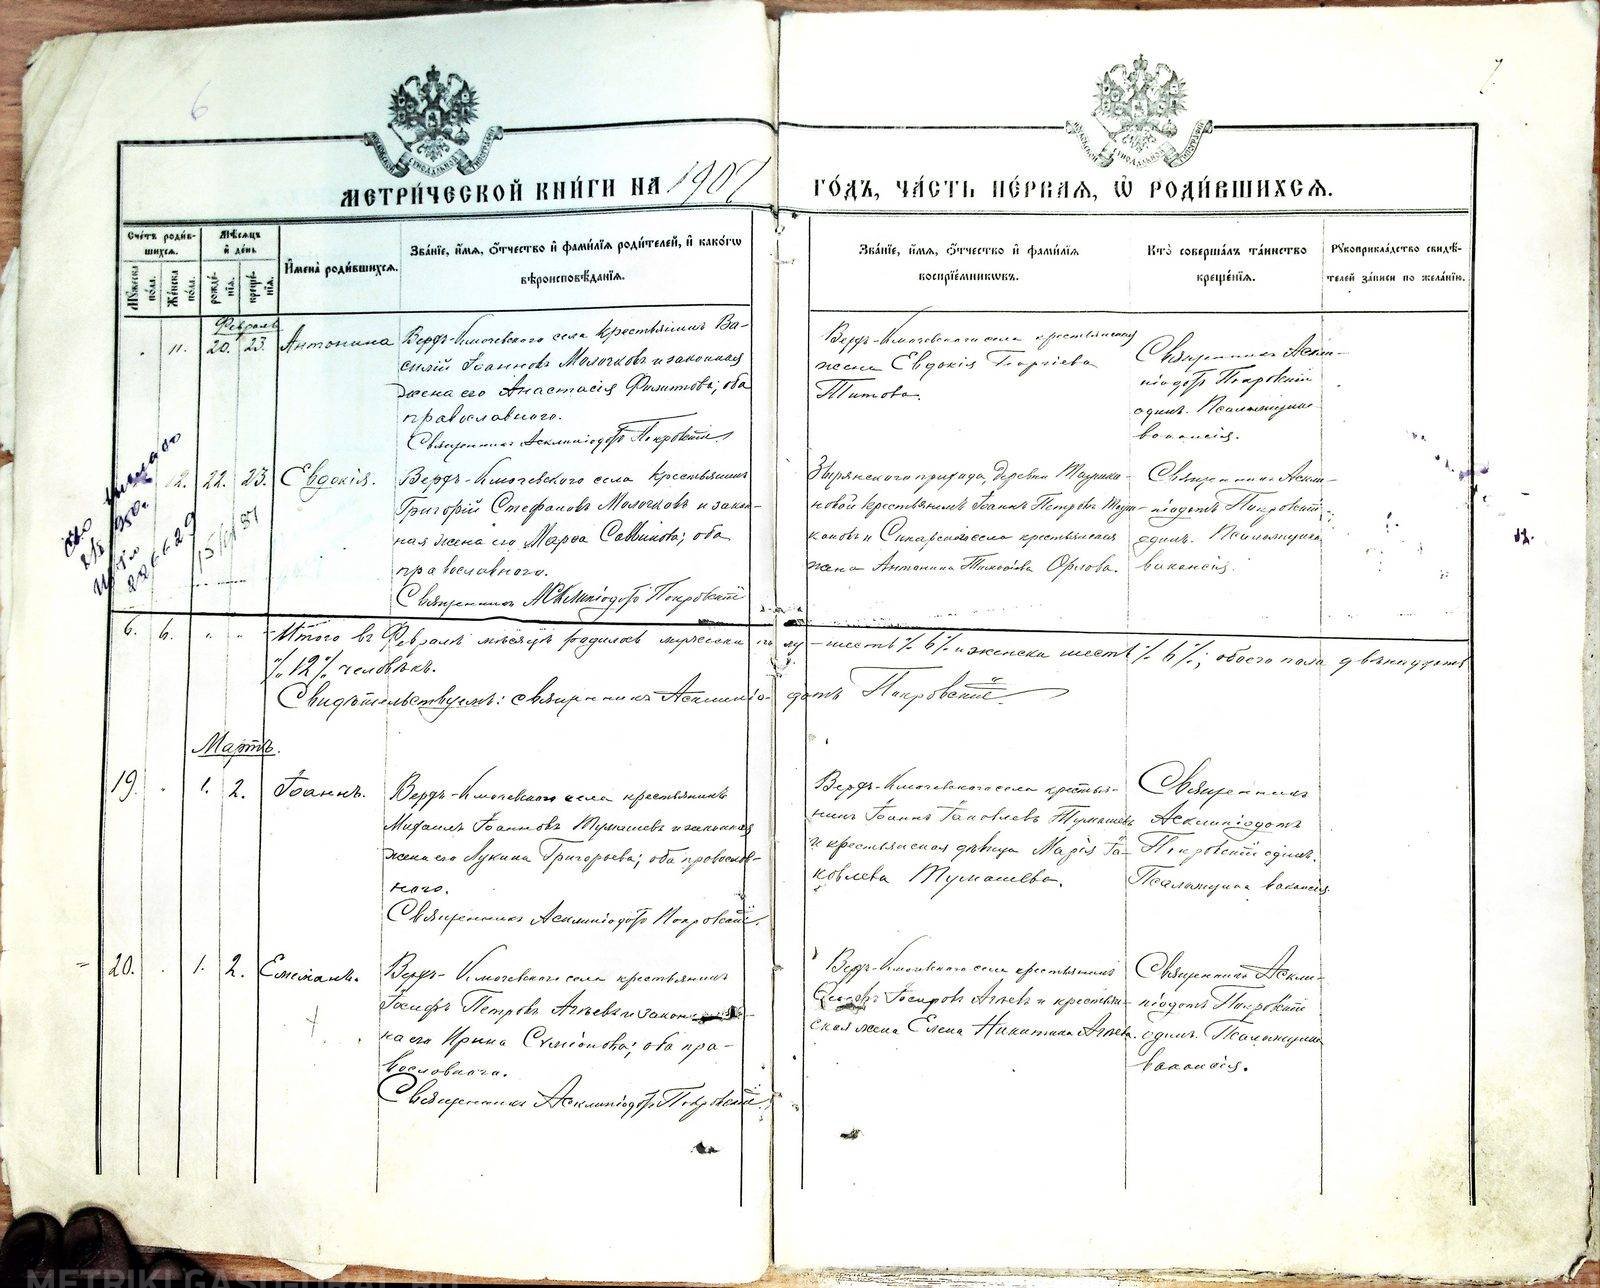 6
МЕТРИ́ЧЕСКОЙ КНИ́ГИ НА 1907
ГО́ДЪ, ЧА́СТЬ ПЕ́РВАЯ, Ѿ РОДИ́ВШИХСЯ.
Сче́тъ роди́вшихся.
Мꙋ́жеска по́ла.
Же́нска по́ла.
Мѣ́сяцъ и҆ де́нь
рожде́нїя.
креще́нїя.
И҆мена̀ роди́вшихся.
Зва́нїе, и҆́мя, ѻ҆́тчество и҆ фами́лїя роди́телей, и҆ како́гѡ
вѣроисповѣ́данїя.
Зва́нїе, и҆́мя, ѻ҆́тчество и҆ фами́лїя
воспрїе́мникѡвъ.
Кто̀ соверша́лъ та́инство
креще́нїя.
Рꙋкоприкла́дство свидѣ́-
телей за́писи по жела́нїю.
Февраль
11. 20. 23. Антонина
Верхъ-Ключевского села крестьянинъ Ва-
силій Іоанновъ Молочковъ и законная
жена его Анастасія Филиппова; оба
православнаго.
Священникъ Асклипіодотъ Покровскій
Верхъ-Ключевского села крестьянская
жена Евдокія Георгіева
Титова.
Священникъ Аскли-
піодотъ Покровскій
одинъ. Псаломщич.
вакансія.
12. 22. 23. Евдокія.
Верхъ-Ключевского села крестьянинъ
Григорій Стефановъ Молочковъ и закон-
ная жена его Марѳа Саввинова; оба
православнаго.
Священникъ Асклипіодотъ Покровскій
Зырянского прихода, деревни
новой крестьянинъ Іоаннъ Петровъ
села крестьянская
жена Антонина Орлова.
Священникъ Аскли-
піодотъ Покровскій
одинъ. Псаломщич.
вакансія.
226629
6. 6. Итого въ Февралѣ мѣсяцѣ родилось мужеска полу – шесть % 6 % и женска шесть % 6 %; обоего пола двѣнадцать
% 12 % человѣкъ.
Свидѣтельствуемъ: священникъ Асклипіодотъ Покровскій
Мартъ.
19. 1. 2. Іоаннъ.
Верхъ-Ключевского села крестьянинъ
Михаилъ Іоанновъ Тумашевъ и законная
жена его Лукина Григорьева; оба православ-
наго.
Священникъ Асклипіодотъ Покровскій
Верхъ-Ключевского села крестья-
нинъ Іоаннъ Іаковлевъ Тумашевъ
и крестьянская дѣвица Марія Іа-
ковлева Тумашева.
Священникъ
Асклипіодотъ
Покровскій одинъ.
Псаломщич. вакансія.
20. 1. 2. Емеліанъ.
Верхъ-Ключевского села крестьянинъ
Іосифъ Петровъ Агѣевъ и закон
на его Ирина Симіонова; оба пра-
вославнаго.
Священникъ Асклипіодотъ Покровскій
Верхъ-Ключевского села крестьянинъ
Іосифовъ Агѣевъ и крестьян-
ская жена Елена Никитина Агѣева.
Священникъ Аскли-
піодотъ Покровскій
одинъ. Псаломщич.
вакансія.